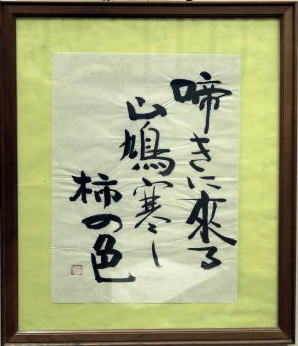 啼きに來る
山鳩寒し
柿の色